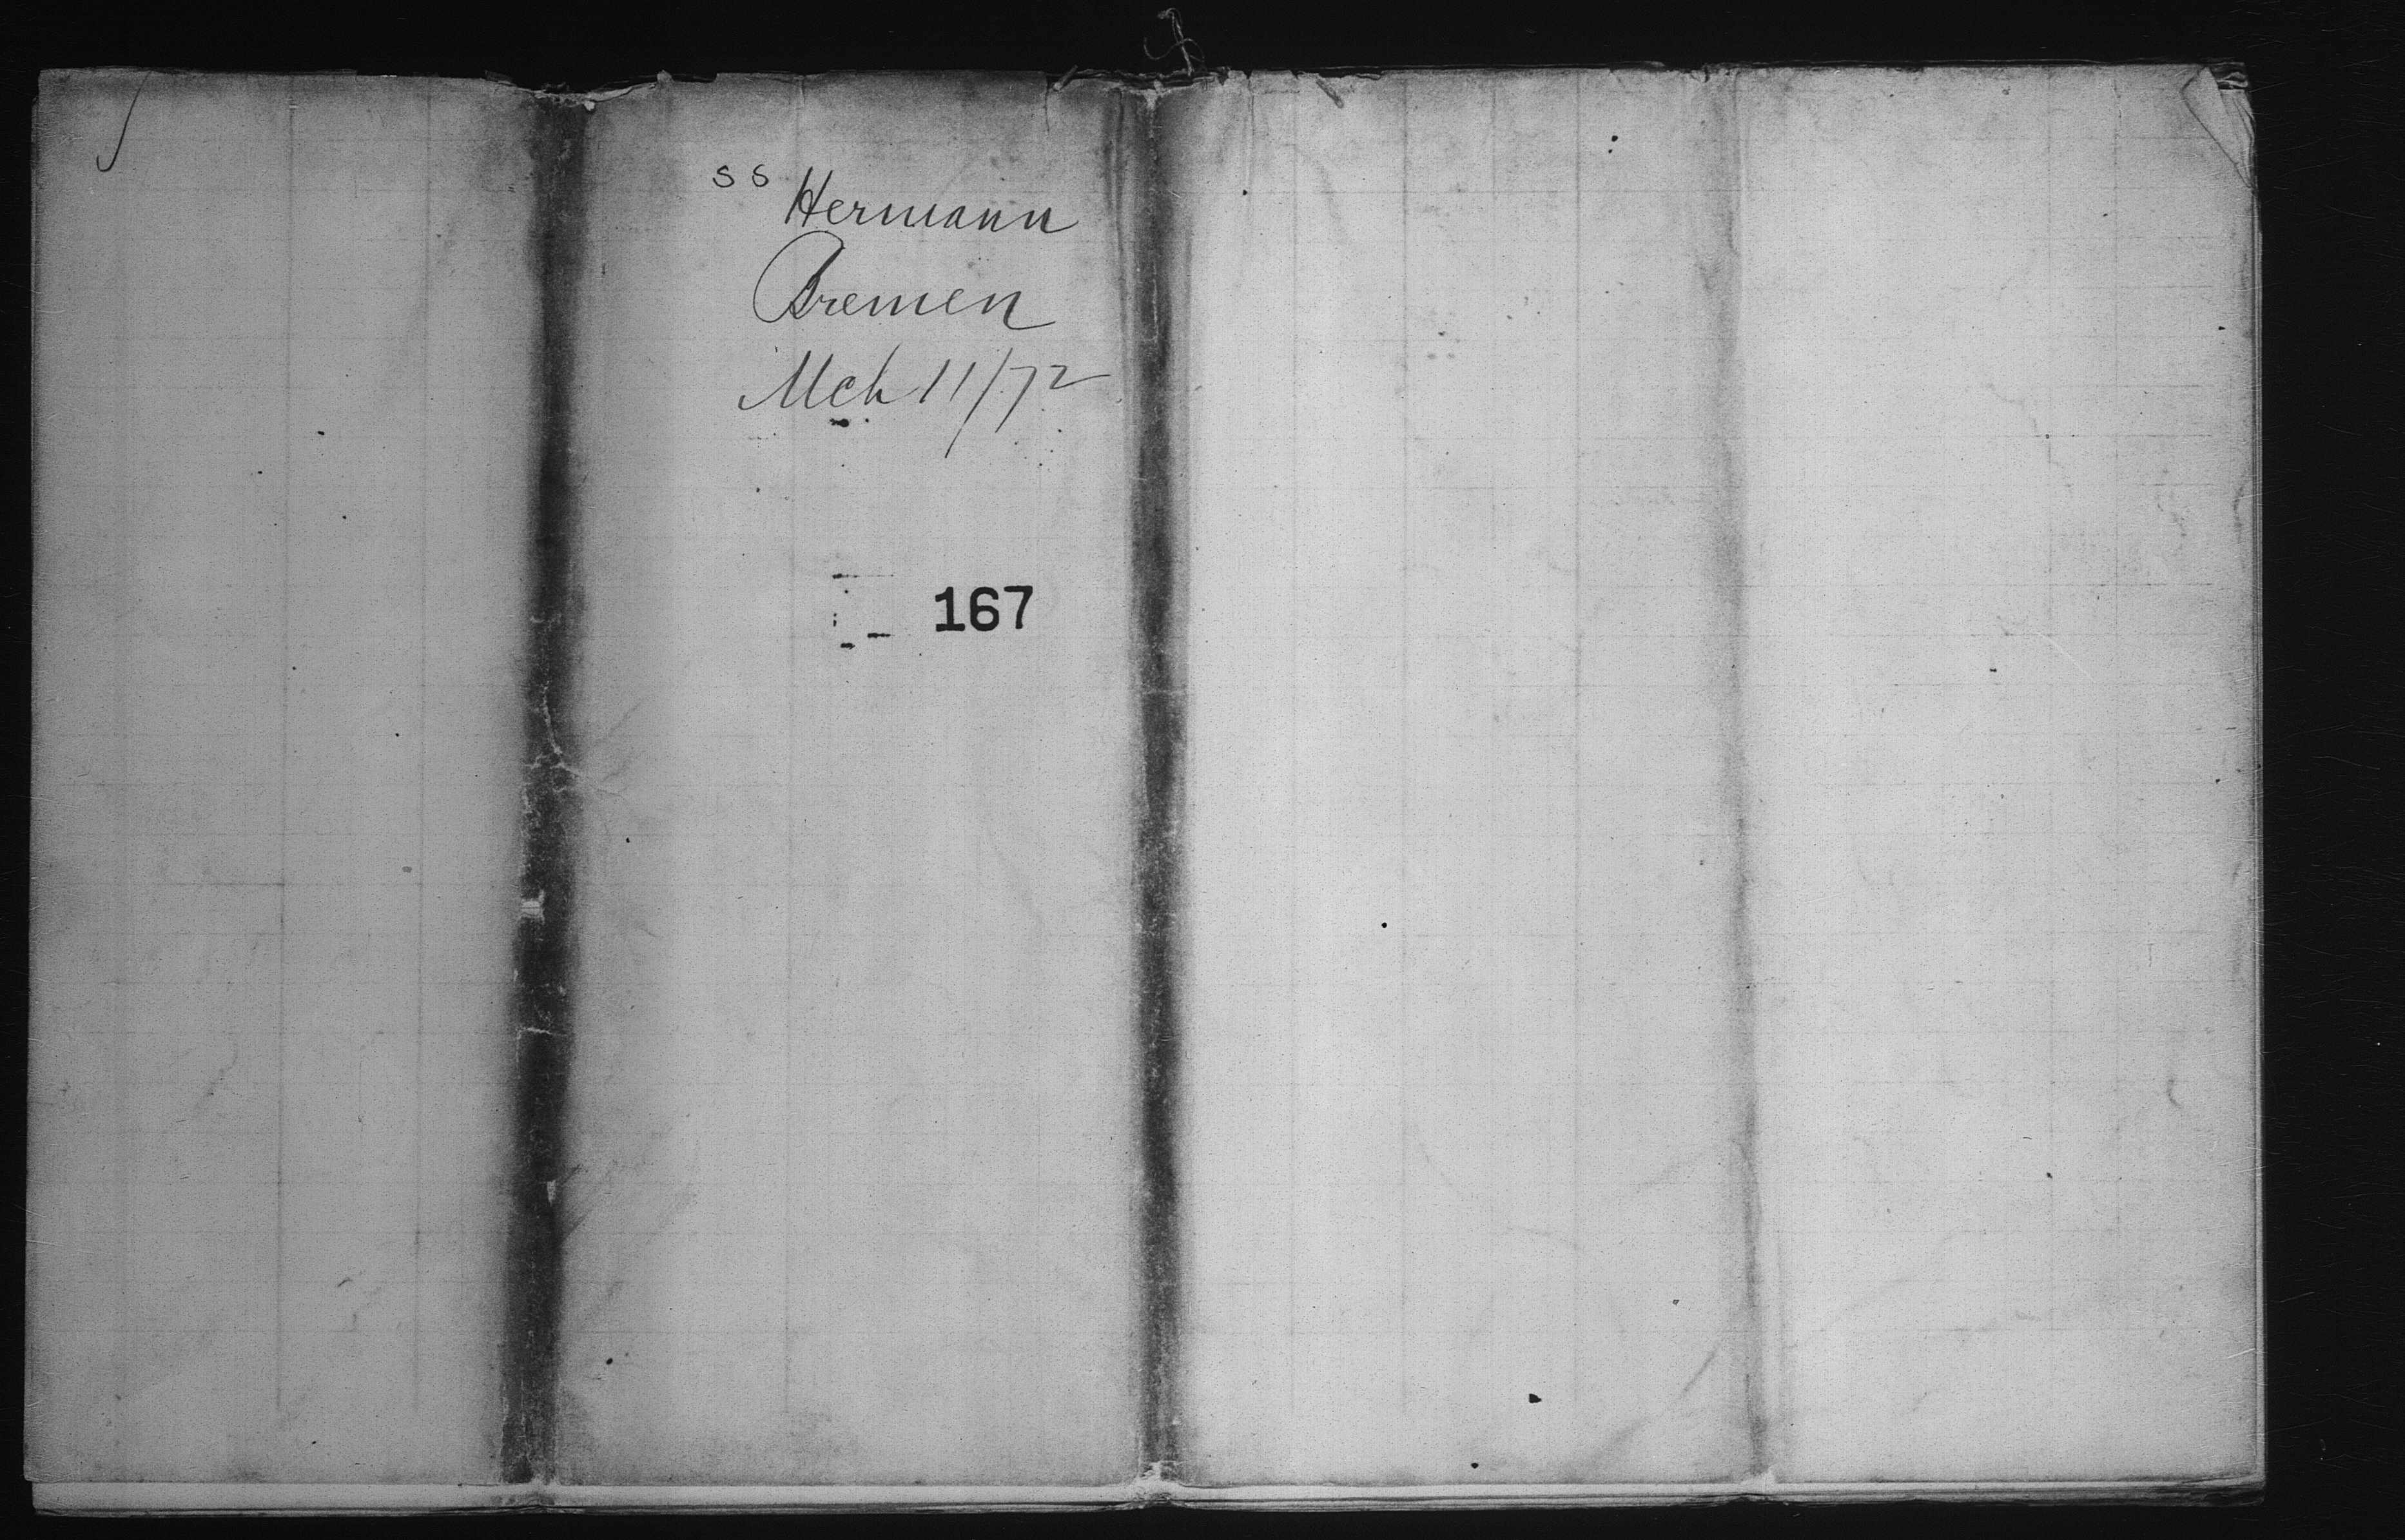 SS Hermann
Bremen
Mch 11/72
167